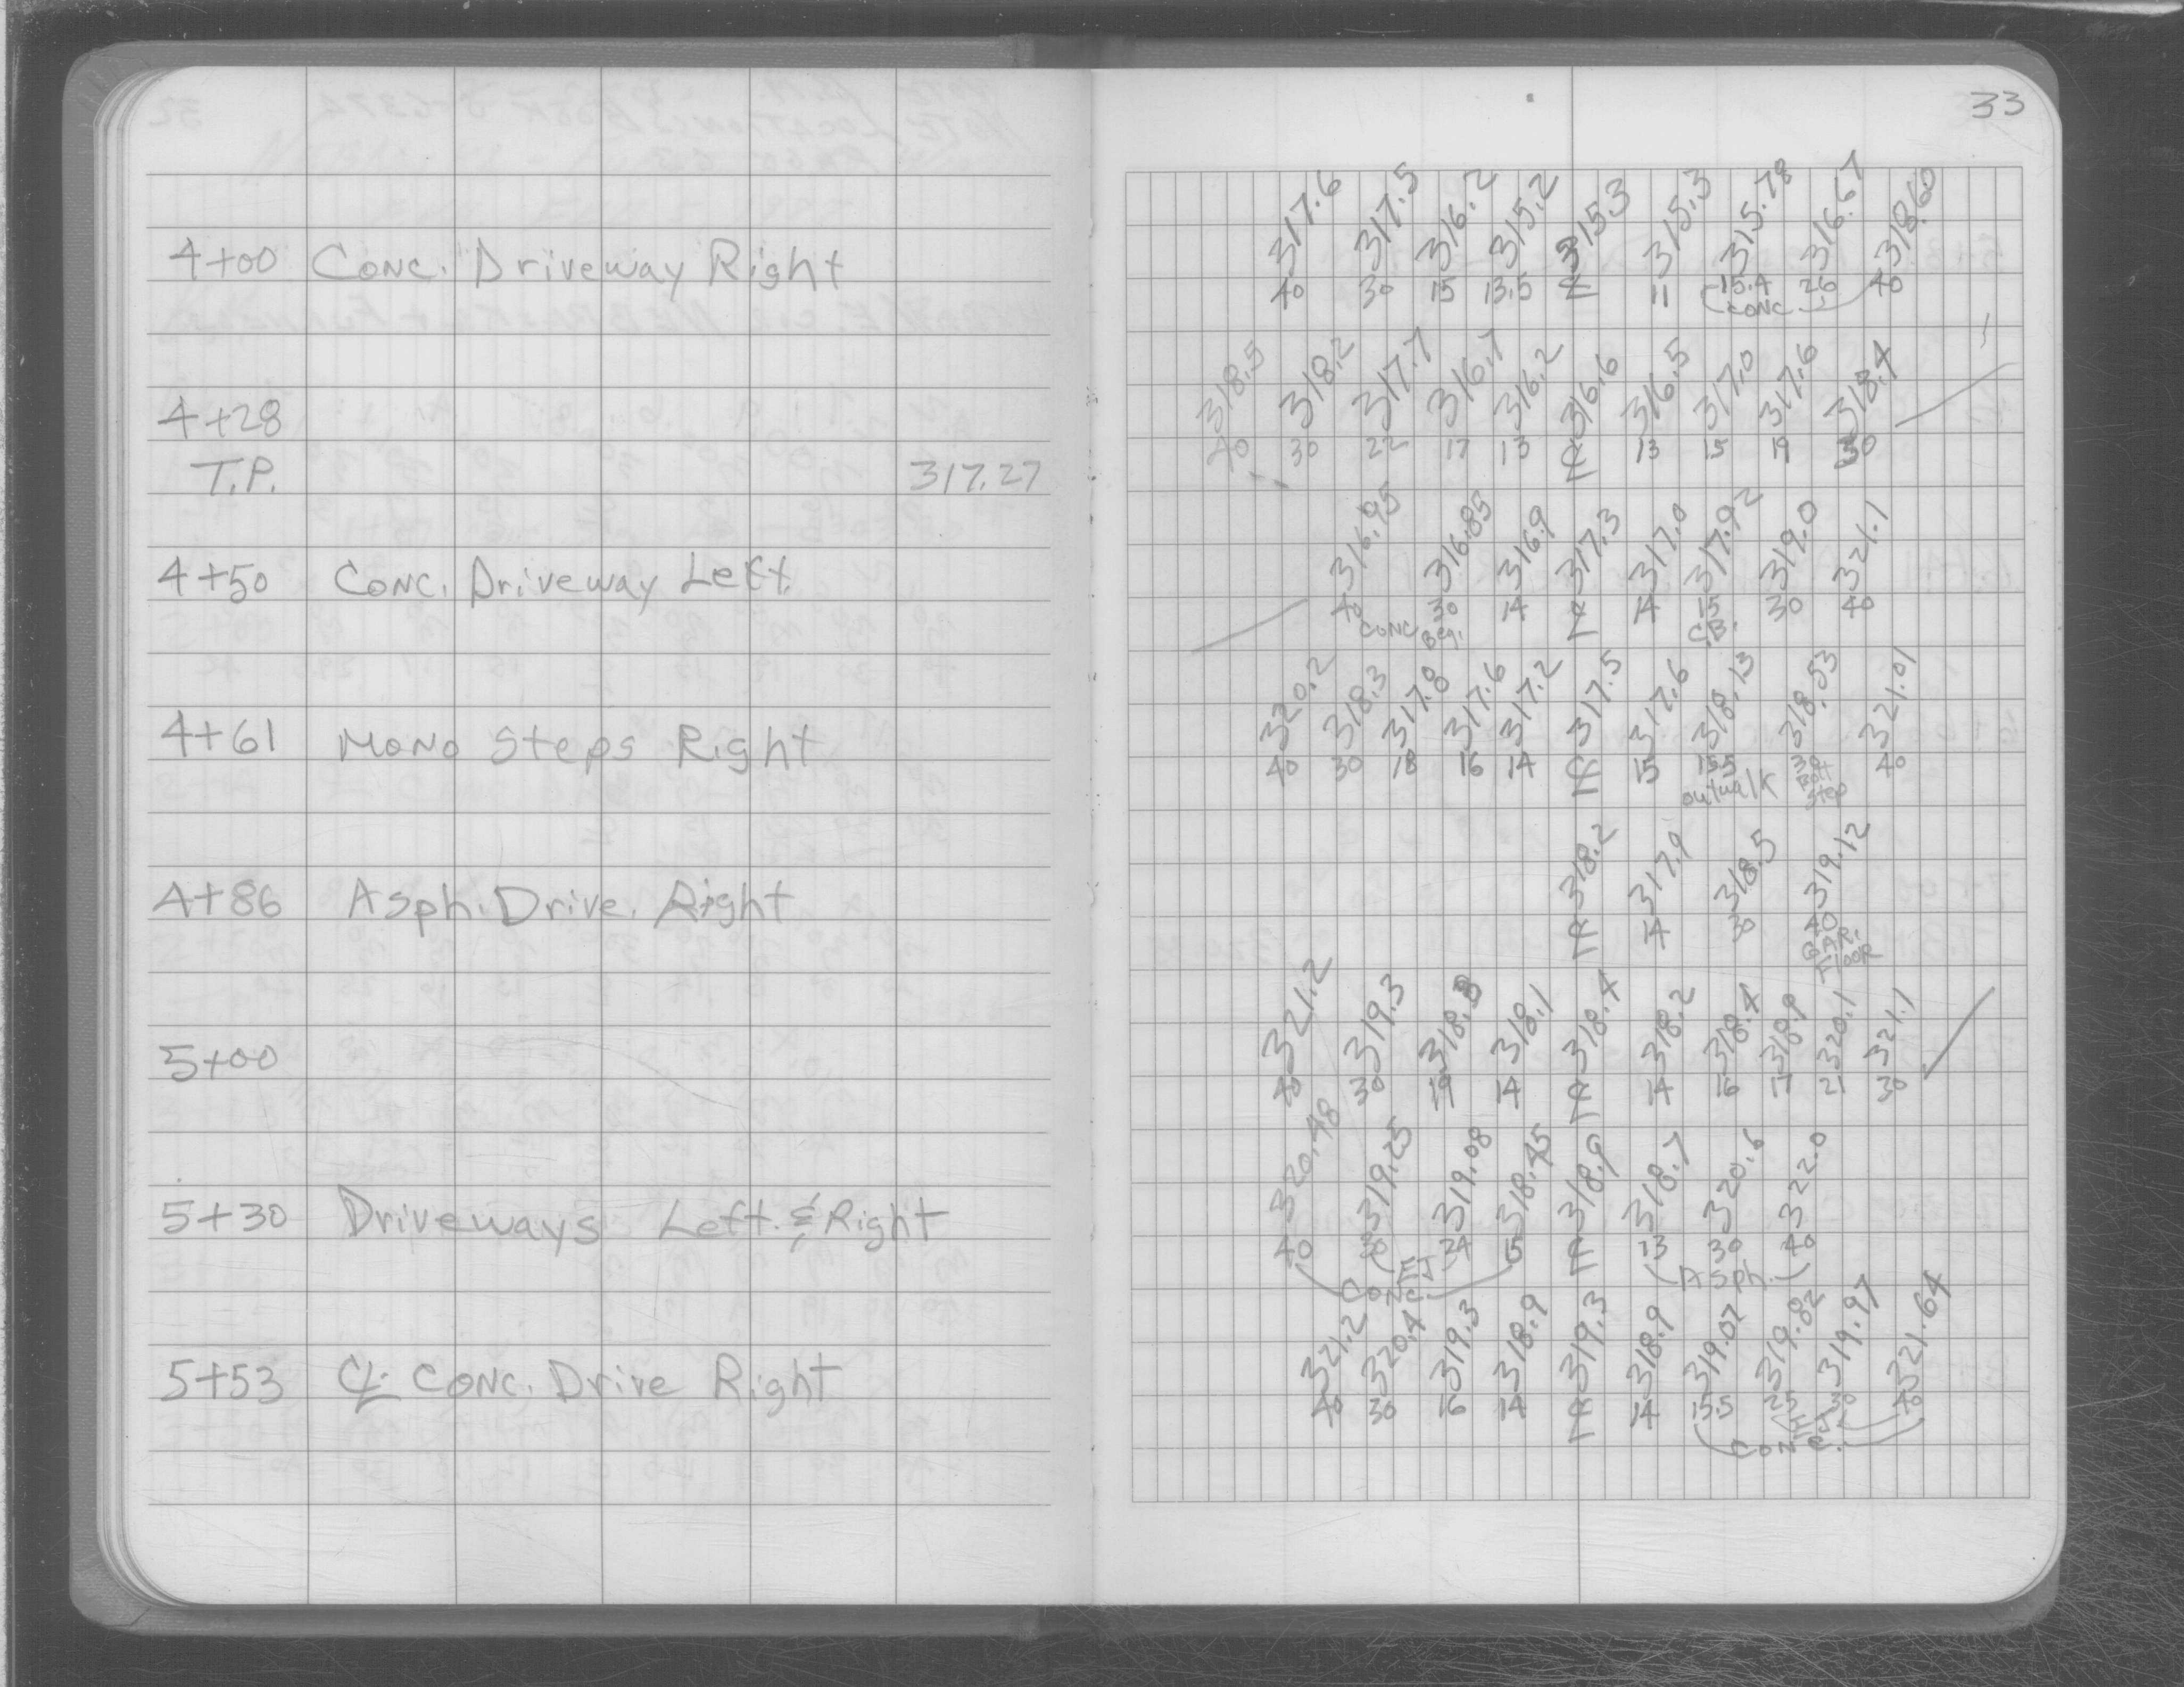 33
4+00 Conc. Driveway Right
317.6 317.5 316.2 315.2 315.3 315.3 315.78 316.67 318.60
40 30 15 13.5 ℄ 11 15.4 26 40
conc
4+28
318.5 318.2 317.7 316.7 316.2 316.6 316.5 317.0 317.6 318.4
40 30 22 17 13 ℄ 13 15 19 30
T.P. 317.27
4+50 Conc. Driveway Left
316.95 316.85 316.9 317.3 317.0 317.92 319.0 321.1
40 30 14 ℄ 14 15 30 40
conc Beg. C.B.
4+61 Mono Steps Right
320.2 318.3 317.8 317.6 317.2 317.5 317.6 318.13 318.53 321.01
40 30 18 16 14 ℄ 15 15.5 30 40
outwalk Bott Step
4+86 Asph. Drive. Right
318.2 317.9 318.5 319.12
℄ 14 30 40
GAR. Floor
5+00
321.2 319.3 318.1 318.4 318.2 318.4 318.9 320.1 321.1
40 30 19 14 ℄ 14 16 17 21 30
5+30 Driveways Left & Right
320.48 319.25 319.08 318.45 318.9 318.7 320.6 322.0
40 30 24 15 ℄ 13 30 40
Conc. EJ Asph.
5+53 ℄ Conc. Drive Right
321.2 320.4 319.3 318.9 319.3 318.9 319.07 319.82 319.97 321.64
40 30 16 14 ℄ 14 15.5 25 30 40
Conc. EJ